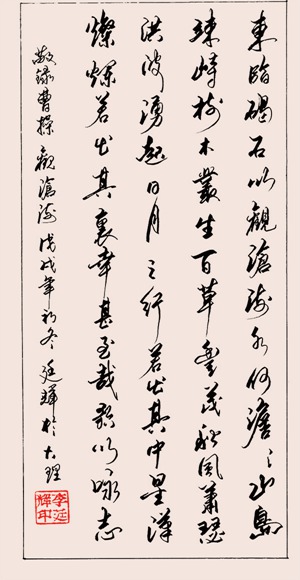 東臨碣石以觀滄海水何澹〻山島
竦峙樹木叢生百草豐茂秋風蕭瑟
洪波湧起日月之行若出其中星漢
燦爛若出其裏幸甚至哉歌以咏志
敬錄曹操觀滄海戊戌年初冬廷輝於大理
李廷輝印